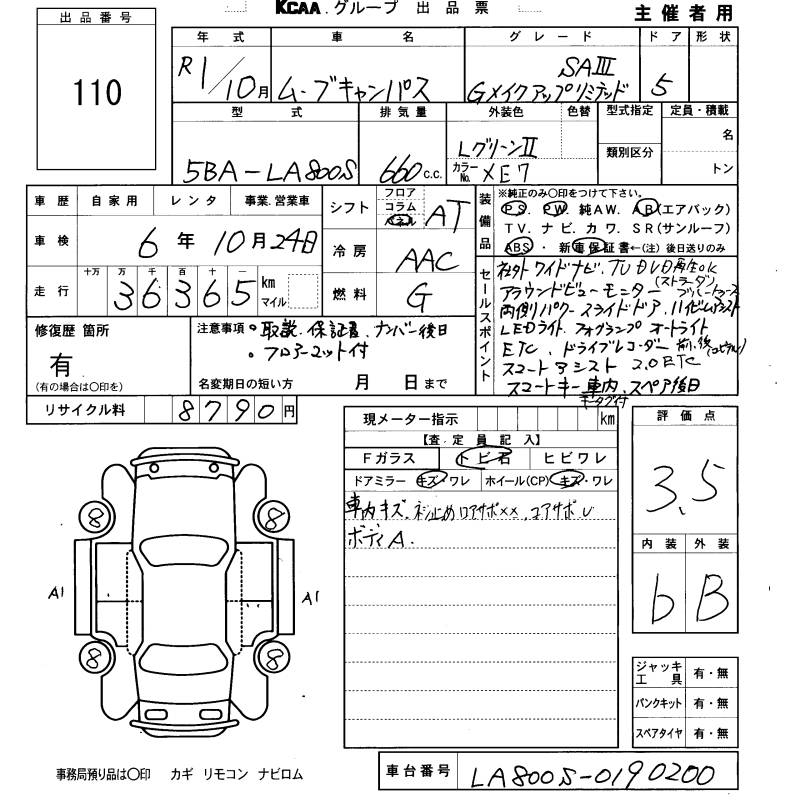 KCAA. グループ 出品票
主催者用
出品番号
110
年式 車名 グレード ドア 形状
R1/10月 ムーブキャンバス SAIII
Gメイクアップリミテッド 5
型式 排気量 外装色 色替 型式指定 定員・積載
名
類別区分
トン
5BA-LA800S 660c.c. LグリーンII
カラーNo. XE7
車歴 自家用 レンタ 事業.営業車
車検 6年10月24日
走行 十万 万 千 百 十 一
36365 km
マイル
シフト フロア コラム パネル AT
冷房 AAC
燃料 G
装備品
※純正のみ〇印をつけて下さい。
PS. PW. 純AW. AB(エアバック)
TV. ナビ. カワ. SR(サンルーフ)
ABS・新車保証書←(注)後日送りのみ
セールスポイント
社外ワイドナビ.TV DVD再生ok
アラウンドビューモニター
両側パワースライドドア.ハイビームアシスト
LEDライト フォグランプ オートライト
ETC. ドライブレコーダー 前.後
スマートアシスト 2.0ETC
スマートキー車内.スペア後日
キータグ付
修復歴 箇所
有
(有の場合は〇印を)
注意事項 ・取説.保証書.ナンバー後日
・フロアーマット付
名変期日の短い方 月 日まで
リサイクル料 8790円
現メーター指示 km
【査.定員記入】
Fガラス トビ石 ヒビワレ
ドアミラー キズ・ワレ ホイール(CP) キズ・ワレ
車内キズ.ネジ止めロアサポ××.コアサポU
ボディA.
評価点
3.5
内装 外装
b B
8 8
A1 A1
8 8
ジャッキ工具 有・無
パンクキット 有・無
スペアタイヤ 有・無
事務局預り品は〇印 カギ リモコン ナビロム
車台番号 LA800S-0190200